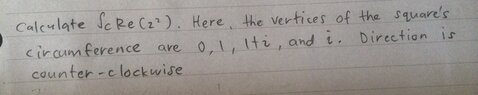 Calculate ∫c Re(z²). Here, the vertices of the square's
circumference are 0, 1, 1+i, and i. Direction is
counter-clockwise